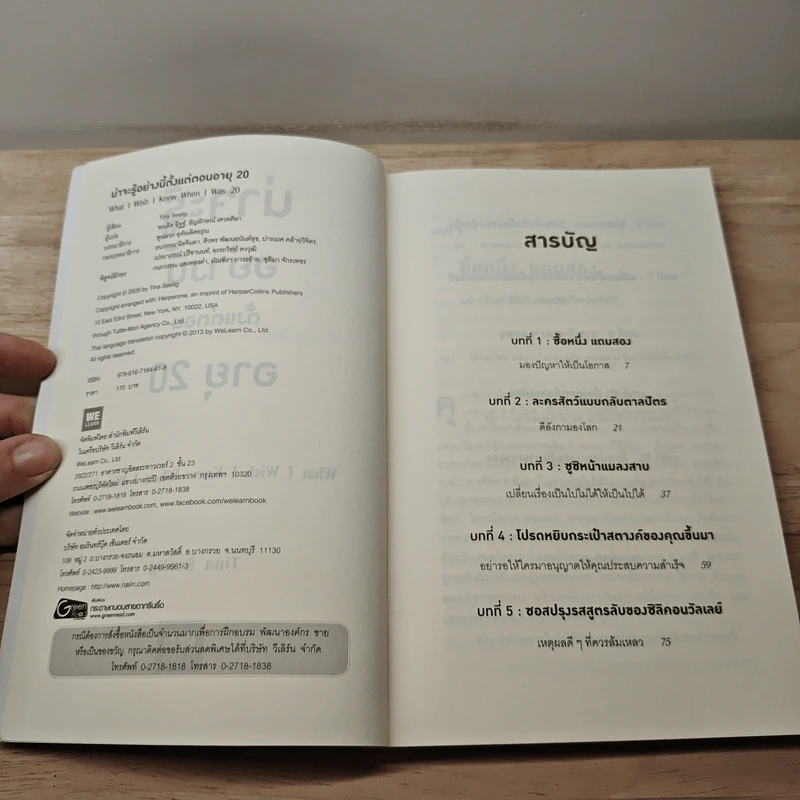 น่าจะรู้อย่างนี้ตั้งแต่ตอนอายุ 20
What I Wish I Knew When I Was 20
ผู้เขียน Tina Seelig
ผู้แปล พรเลิศ อิฐฐ์, อัญลักษณ์ เศวตศิลา
บรรณาธิการ
กองบรรณาธิการ
พิสูจน์อักษร
Copyright © 2009 by Tina Seelig
Copyright arranged with: Harperone, an imprint of HarperCollins Publishers
10 East 53rd Street, New York, NY. 10022, USA
through Tuttle-Mori Agency Co., Ltd.
Thai language translation copyright © 2013 by WeLearn Co., Ltd.
All rights reserved.
ISBN 978-616-7164-61-8
ราคา 170 บาท
WE
LEARN
จัดพิมพ์โดย สำนักพิมพ์วีเลิร์น
ในเครือบริษัท วีเลิร์น จำกัด
WeLearn Co., Ltd.
2922/271 อาคารชาญอิสสระทาวเวอร์ 2 ชั้น 23
ถนนเพชรบุรีตัดใหม่ แขวงบางกะปิ เขตห้วยขวาง กรุงเทพฯ 10320
โทรศัพท์ 0-2718-1818 โทรสาร 0-2718-1838
Website : www.welearnbook.com, www.facebook.com/welearnbook
จัดจำหน่ายทั่วประเทศโดย
บริษัท อมรินทร์บุ๊ค เซ็นเตอร์ จำกัด
108 หมู่ 2 ถ.บางกรวย-จงถนอม ต.มหาสวัสดิ์ อ.บางกรวย จ.นนทบุรี 11130
โทรศัพท์ 0-2423-9999 โทรสาร 0-2449-9561-3
Homepage : http://www.naiin.com
Green
Read
พิมพ์บน
กระดาษถนอมสายตากรีนรี้ด
www.greenread.com
กรณีต้องการสั่งซื้อหนังสือเป็นจำนวนมากเพื่อการฝึกอบรม พัฒนาองค์กร ขาย
หรือเป็นของขวัญ กรุณาติดต่อขอรับส่วนลดพิเศษได้ที่บริษัท วีเลิร์น จำกัด
โทรศัพท์ 0-2718-1818 โทรสาร 0-2718-1838
สารบัญ
บทที่ 1 : ซื้อหนึ่ง แถมสอง
มองปัญหาให้เป็นโอกาส 7
บทที่ 2 : ละครสัตว์แบบกลับตาลปัตร
ตีลังกามองโลก 21
บทที่ 3 : ซูชิหน้าแมลงสาบ
เปลี่ยนเรื่องเป็นไปไม่ได้ให้เป็นไปได้ 37
บทที่ 4 : โปรดหยิบกระเป๋าสตางค์ของคุณขึ้นมา
อย่ารอให้ใครมาอนุญาตให้คุณประสบความสำเร็จ 59
บทที่ 5 : ซอสปรุงรสสูตรลับของซิลิคอนวัลเลย์
เหตุผลดี ๆ ที่ควรล้มเหลว 75